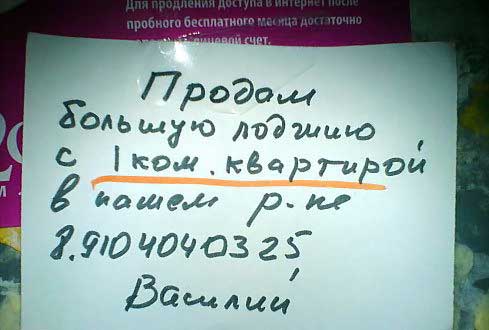 Для продления доступа в интернет после
пробного бесплатного месяца достаточно
лицевой счет.
Продам
большую лоджию
с 1 ком. квартирой
в нашем р-не
8.9104040325
Василий